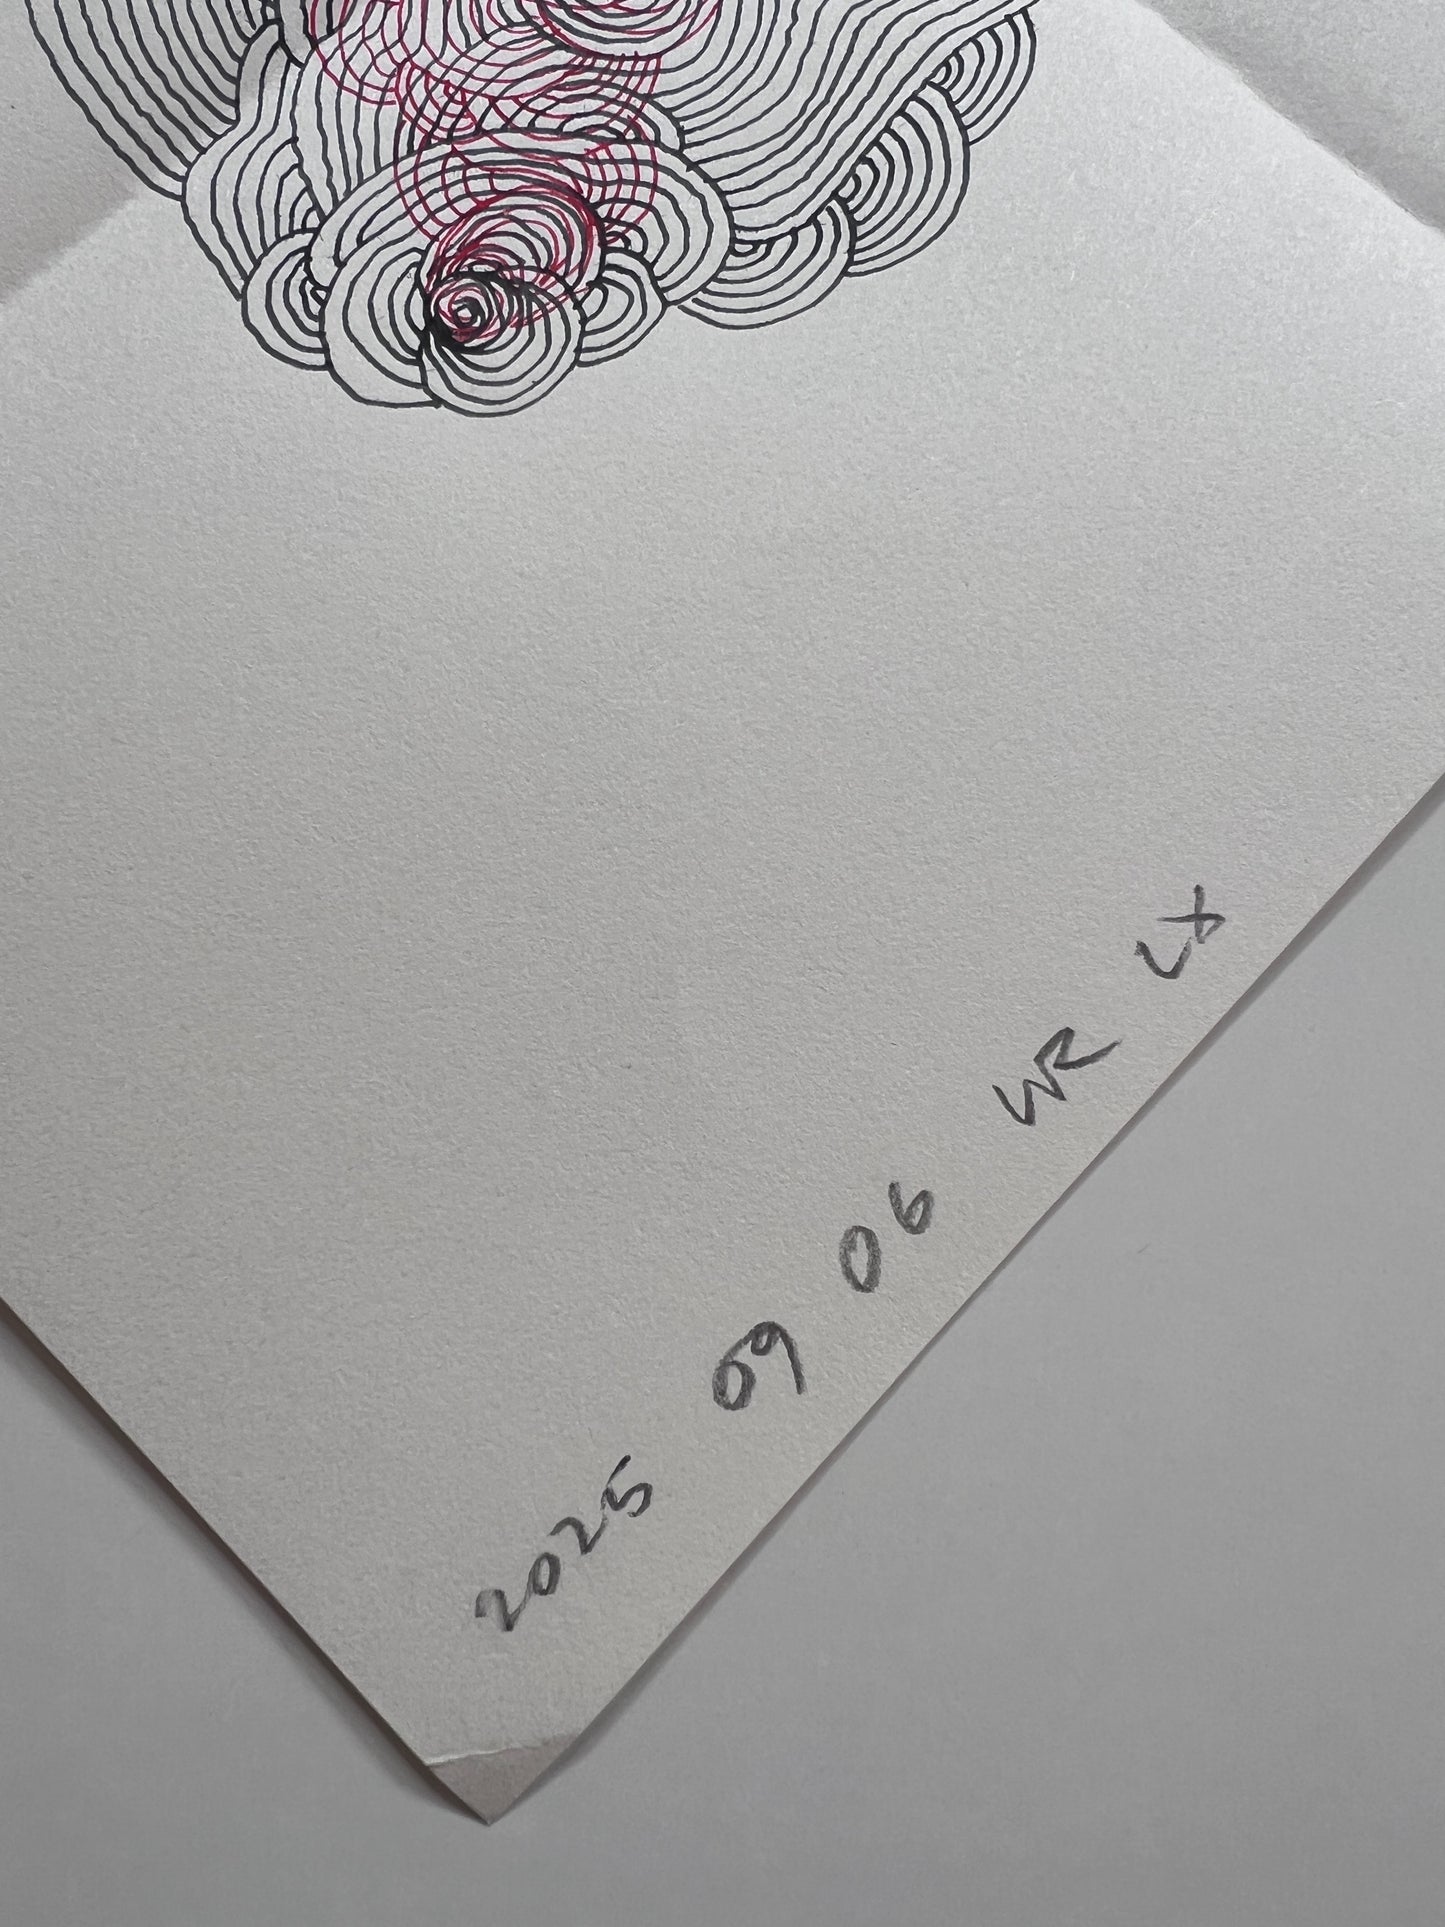 2025 09 06 WR LX